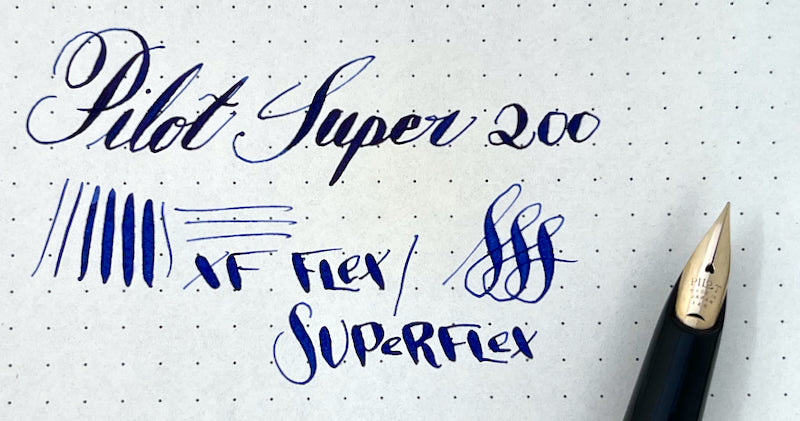 Pilot Super 200
XF FLex/
SUPeRFLex
PILOT